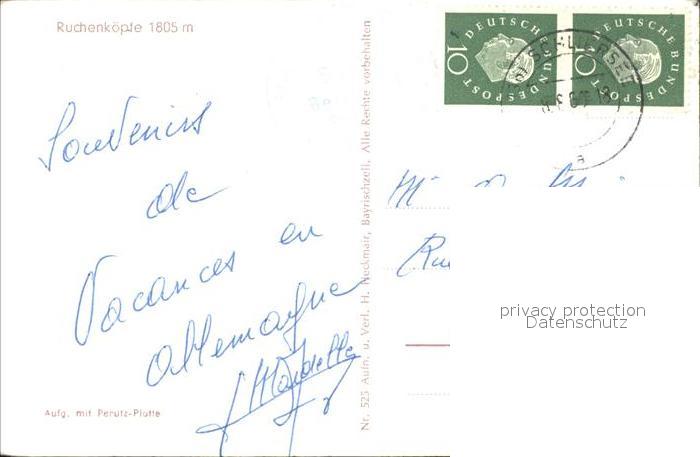 Ruchenköpfe 1805 m
Souvenirs
de
Vacances en
Allemagne
Aufg. mit Perutz-Platte
Nr. 525 Aufn. u. Verl. H. Neckmair, Bayrischzell. Alle Rechte vorbehalten
DEUTSCHE BUNDESPOST
10
DEUTSCHE BUNDESPOST
10
SCHLIERS
a
M
Rue
privacy protection
Datenschutz